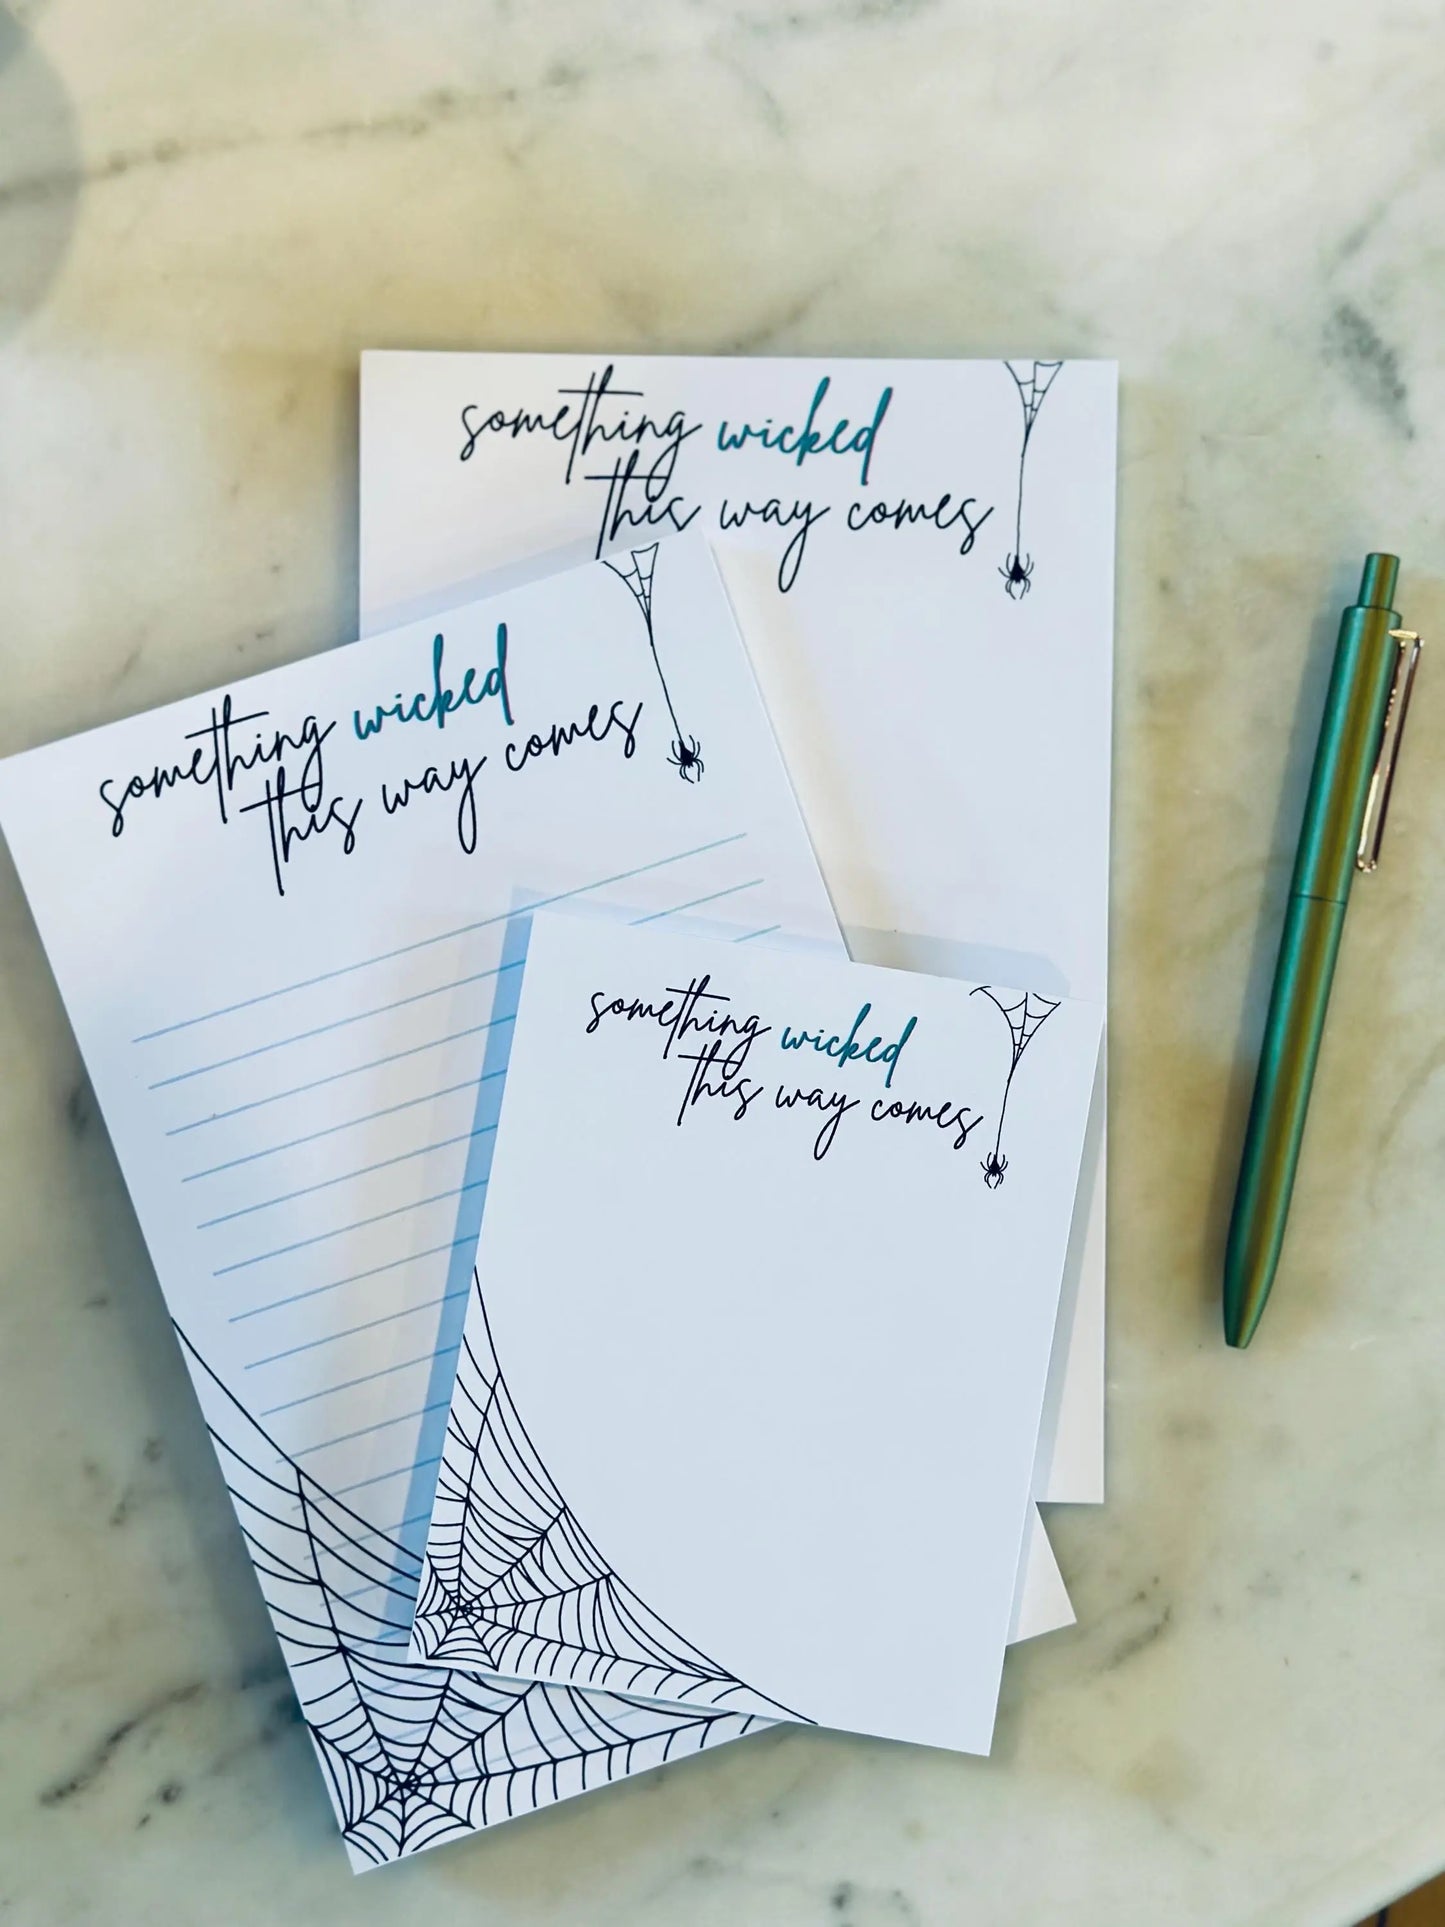 something wicked
this way comes
something wicked
this way comes
something wicked
this way comes